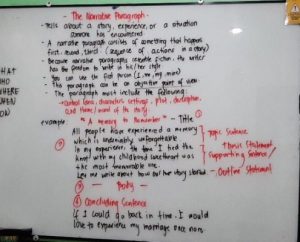 - The Narrative Paragraph -
- Tells about a story, experience, or a situation
someone has encountered
- A narrative paragraph consists of something that happens
first, second, third (sequence of actions in a story)
- Because narrative paragraphs resemble fiction, the writer
has the freedom to write in his/her style
- You can use the first person (I, me, my, mine)
- This paragraph can be an objective point of view
- The paragraph must include the following:
characters, settings, plot, description,
and theme/moral of the story.
WHAT
WHO
WHERE
WHEN
example: "A memory to Remember" - Title
All people have experienced a memory
which is undeniably unforgettable
topic Sentence
In my experience, the time I tied the
knot with my childhood sweetheart was
the most memorable one.
Thesis Statement
Supporting Sentence
Let me write about how our love story started.
- Outline Statement
③ - Body -
④ Concluding Sentence
If I could go back in time, I would
love to experience my marriage once more.